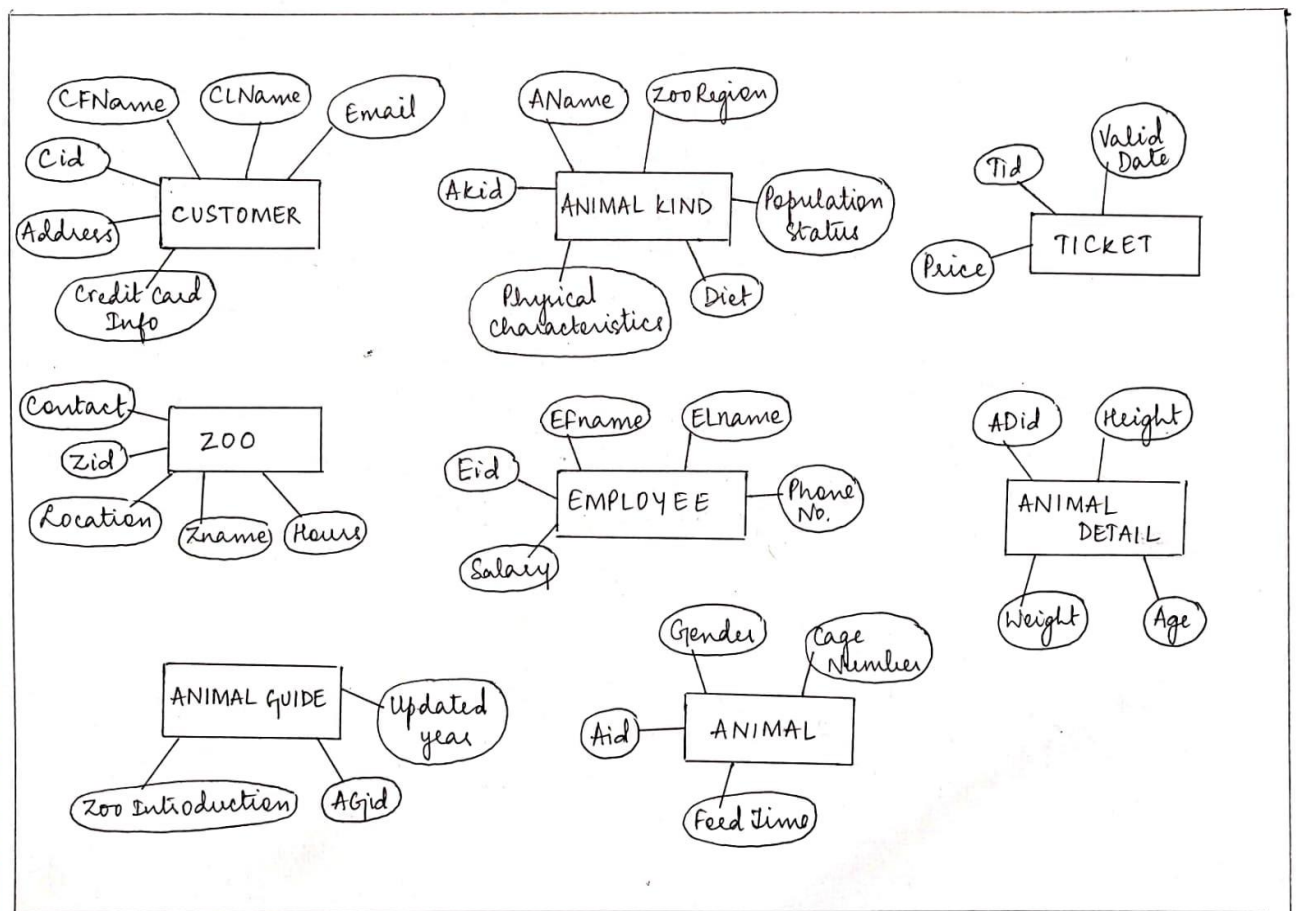 CFName
CLName
Email
Cid
Address
CUSTOMER
Credit Card
Info
AName
Zoo Region
Akid
ANIMAL KIND
Population
Status
Physical
Characteristics
Diet
Valid
Date
Tid
TICKET
Price
Contact
Zid
ZOO
Location
Zname
Hours
EFname
ELname
Eid
EMPLOYEE
Phone
No.
Salary
ADid
Height
ANIMAL
DETAIL
Weight
Age
ANIMAL GUIDE
Updated
year
Zoo Introduction
AGid
Gender
Cage
Number
Aid
ANIMAL
Feed Time